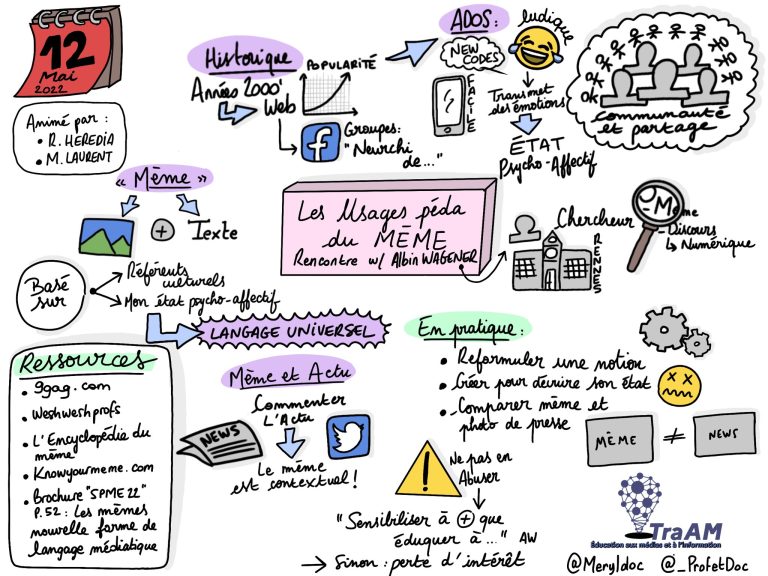 12
Mai
2022
Animé par :
• R. HEREDIA
• M. LAURENT
Historique
Années 2000'
Web
POPULARITÉ
Groupes:
"Neurchi
de..."
ADOS:
ludique
NEW
CODES
FACILE
Transmet
des émotions
ÉTAT
Psycho-Affectif
communauté
et partage
« Mème »
+
Texte
Basé
sur
Référents
culturels
Mon état psycho-affectif
LANGAGE UNIVERSEL
Les Usages péda
du MÈME
Rencontre w/ Albin WAGENER
Chercheur
RENNES
- Mème
- Discours
↳ Numérique
Ressources
• 9gag.com
• Weshweshprofs
• L'Encyclopédia du
mème
• Knowyourmeme.com
• Brochure "SPME 22"
P.52 : Les mèmes
nouvelle forme de
langage médiatique
Mème et Actu
Commenter
L'Actu
NEWS
Le mème
est contextuel !
En pratique :
• Reformuler une notion
• Créer pour décrire son état
• Comparer mème et
photo de presse
MÈME
≠
NEWS
!
Ne pas en
Abuser
"Sensibiliser à + que
éduquer à..." AW
→ Sinon : perte d'intérêt
TraAM
Éducation aux médias et à l'information
@Meryldoc @_ProfetDoc